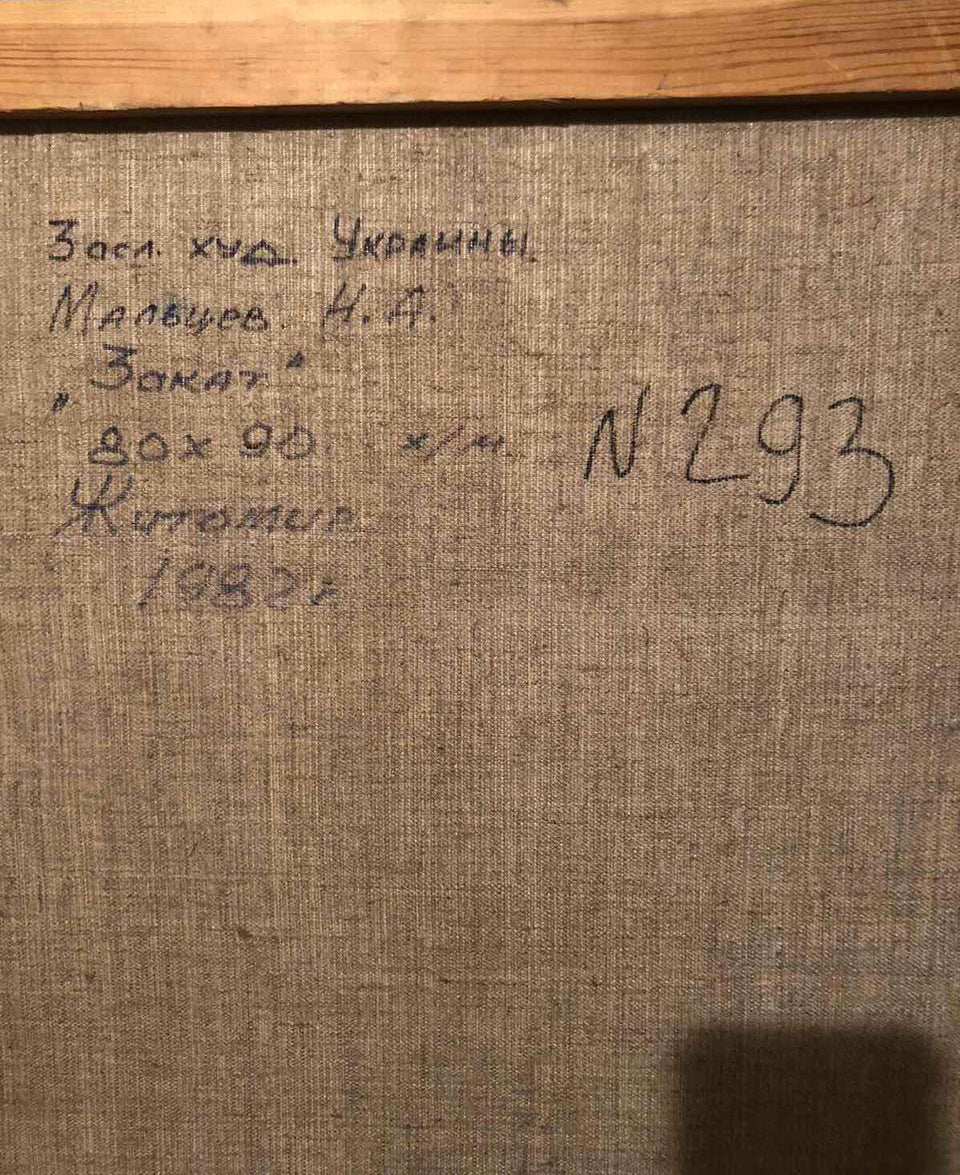 Засл. худ Украины
Мальцев. Н. А.
„Закат"
80 х 90. х/м
N 293
Житомир
1982 г